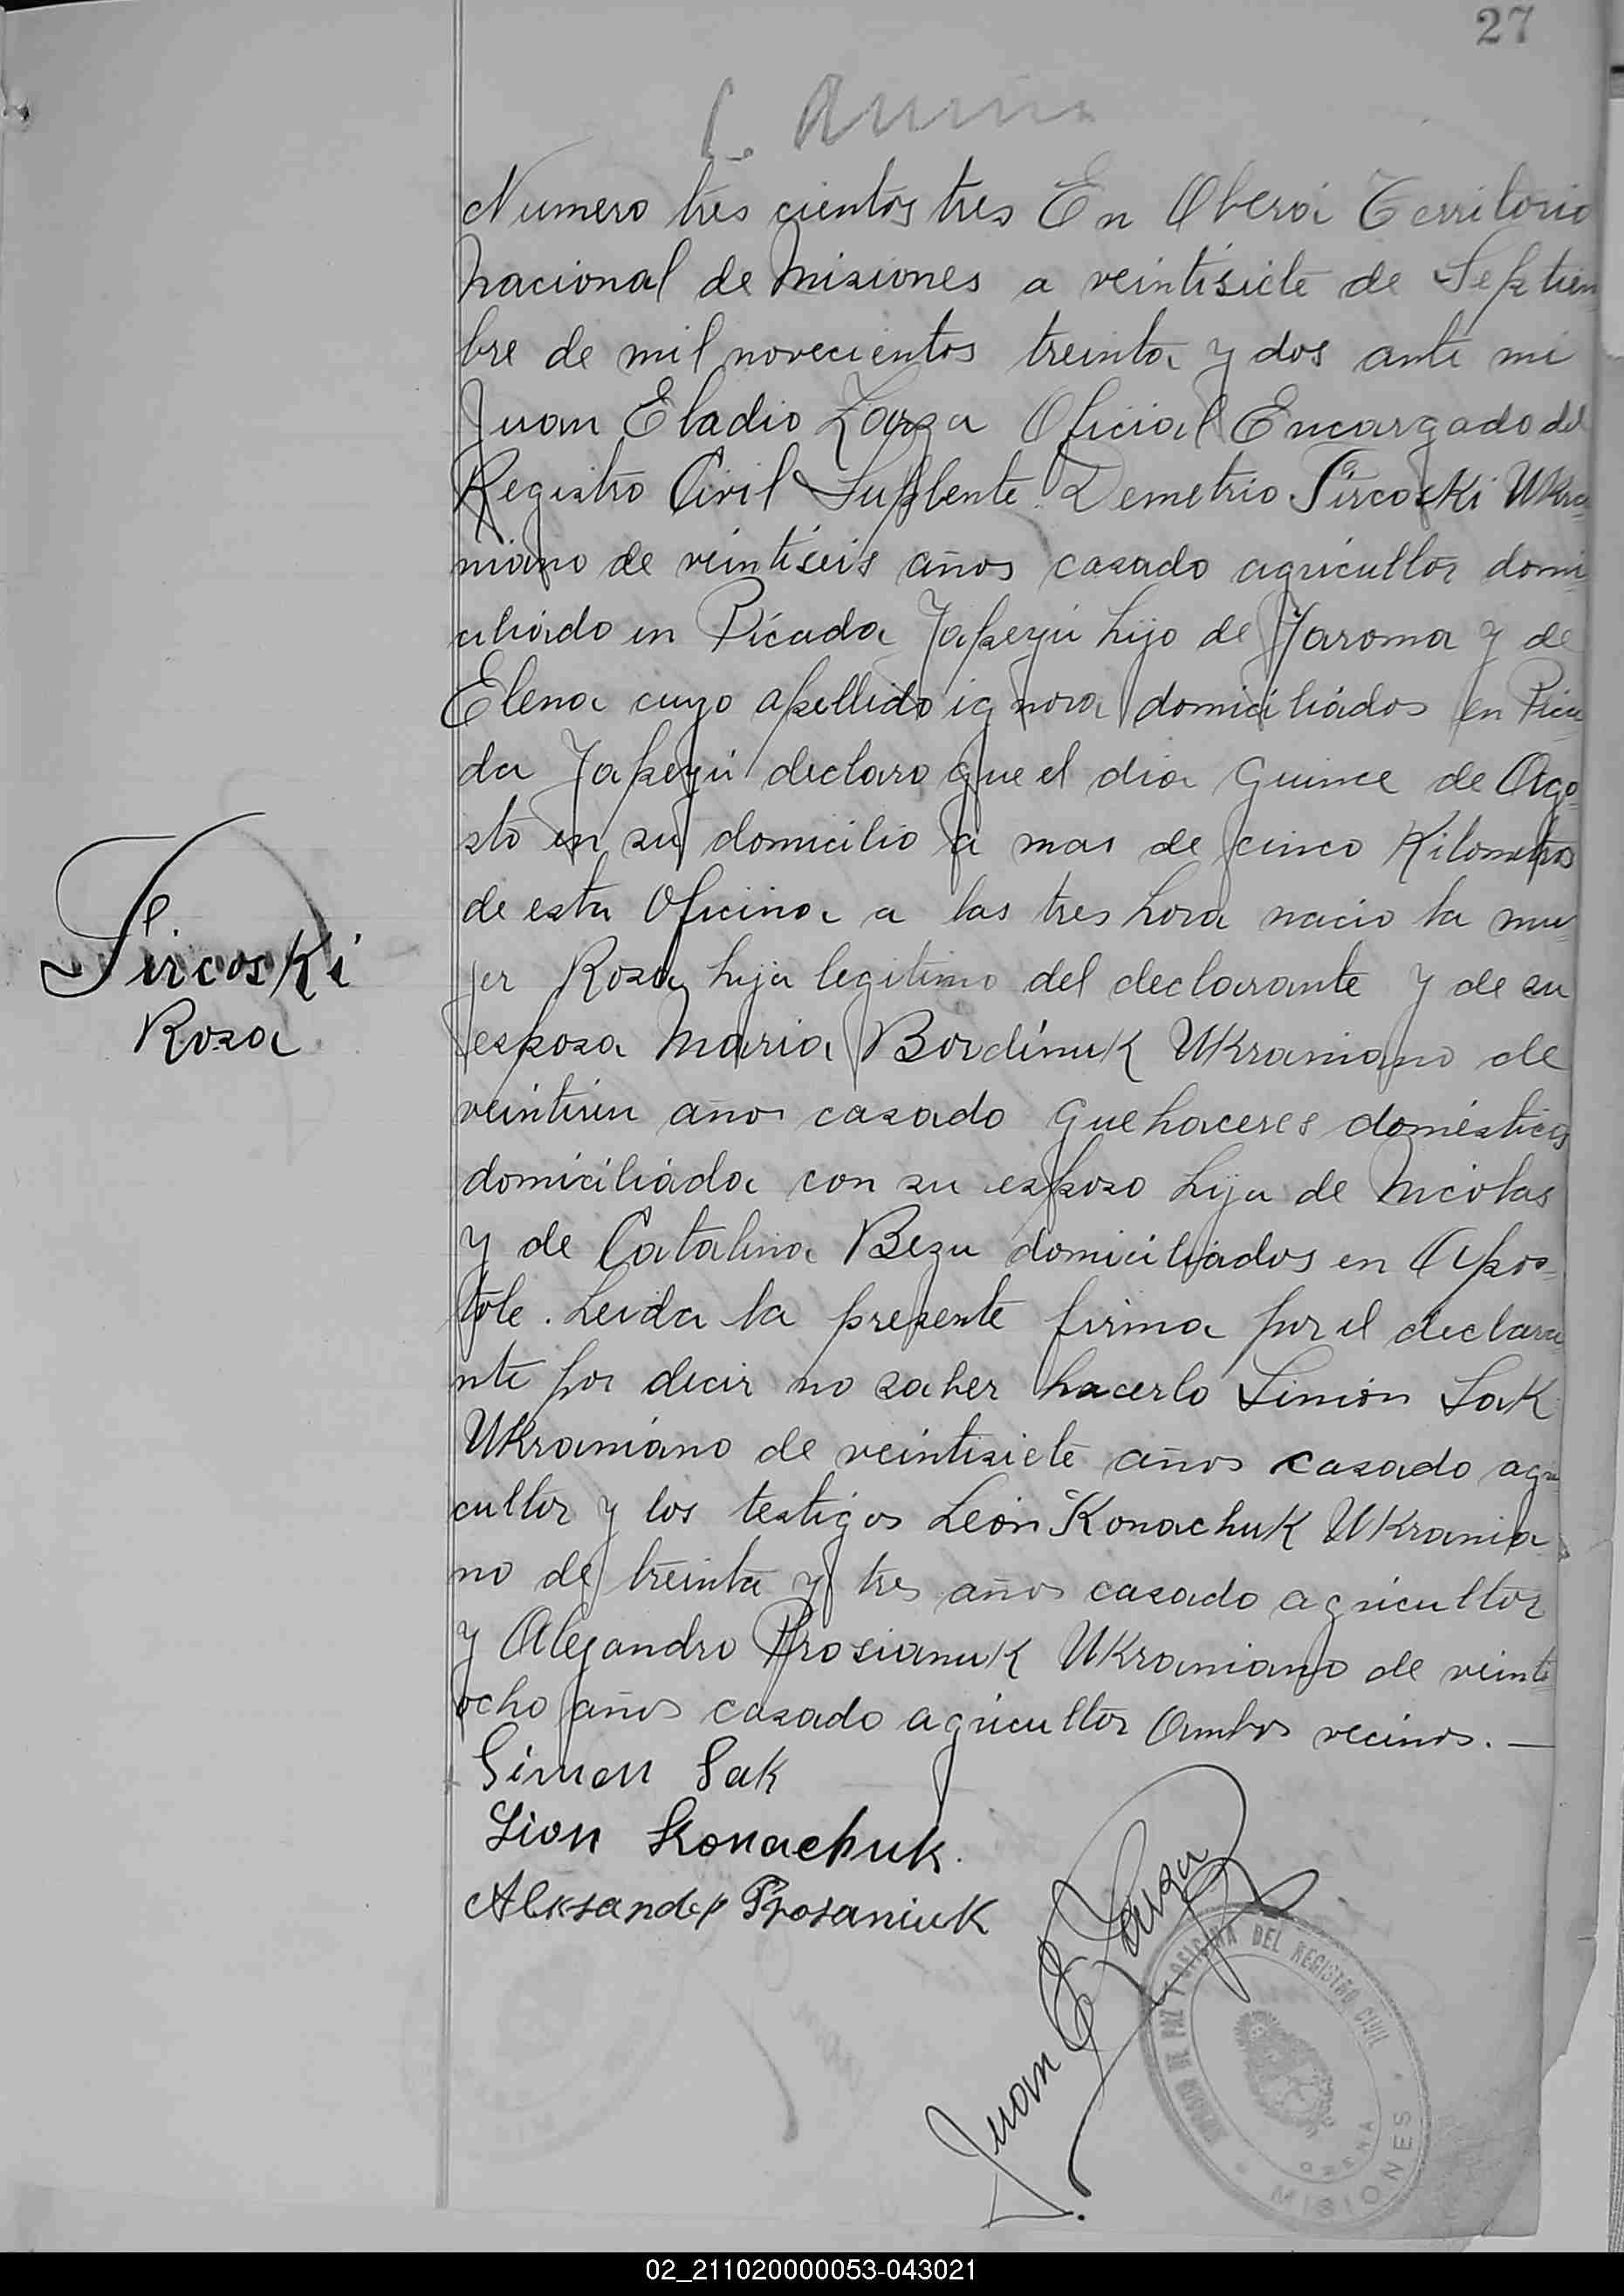 27
Numero tres cientos tres En Oberá Territorio
Nacional de Misiones a veintisiete de Septiem
bre de mil novecientos treinta y dos ante mi
Juan Eladio Zarza Oficial Encargado del
Registro Civil Suplente. Demetrio Sircoski Ukra
niano de veintiseis años casado agricultor domi
ciliado en Picada Yapeyú hijo de Yaroma y de
Elena cuyo apellido ignora domiciliados en Pica
da Yapeyú declaro que el dia quince de Ago
sto en su domicilio a mas de cinco Kilometros
de esta Oficina a las tres hora nacio la mu
jer Rosa hija legitimo del declarante y de su
esposa Maria Bordinuk Ukraniano de
años casado quehaceres domésticos
domiciliada con su esposo hija de Nicolas
y de Catalina Bezu domiciliados en Apos-
tole. Leida la presente firma por el declara
nte por decir no saber hacerlo Simón Sak
Ukraniano de veintisiete años casado agri
cultor y los testigos León Konachuk Ukrania
no de treinta y tres años casado agricultor
y Alejandro Prosianuk Ukraniano de veinti
ocho años casado agricultor Ambos vecinos. —
Sircoski
Rosa
Simon Sak
Lion Konachuk.
Aleksander Prosaniuk
Juan E Zarza
JUZGADO DE PAZ Y OFICINA DEL REGISTRO CIVIL
OBERA
MISIONES
02_211020000053-043021